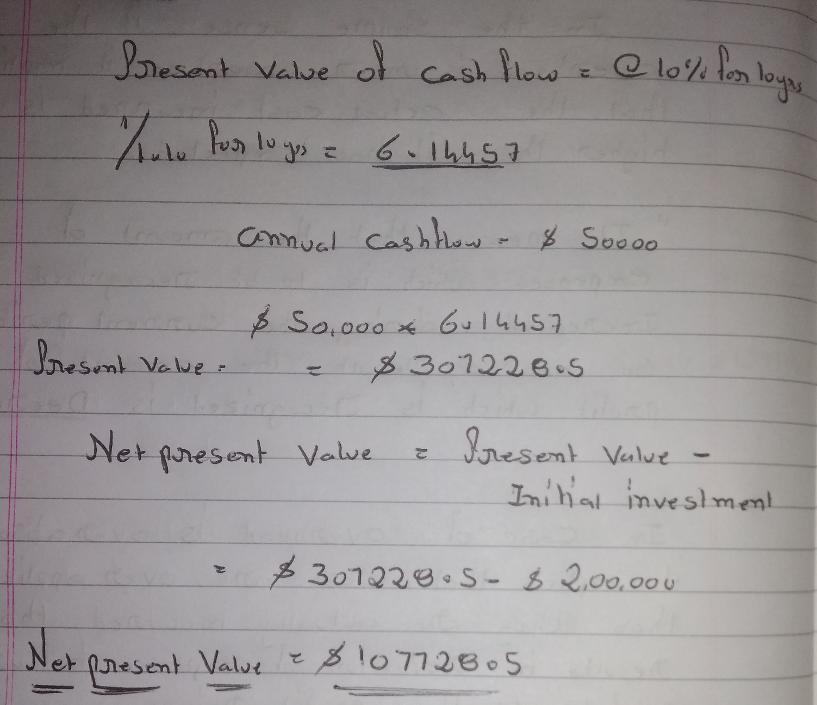 Present Value of Cash flow = @ 10% for 10yrs
1/1.10 for 10 yrs = 6.14457
Annual Cashflow = $ 50000
$ 50,000 × 6.14457
Present Value = = $ 307228.5
Net present Value = Present Value -
Initial investment
= $ 307228.5 - $ 2,00,000
Net present Value = $ 107728.5